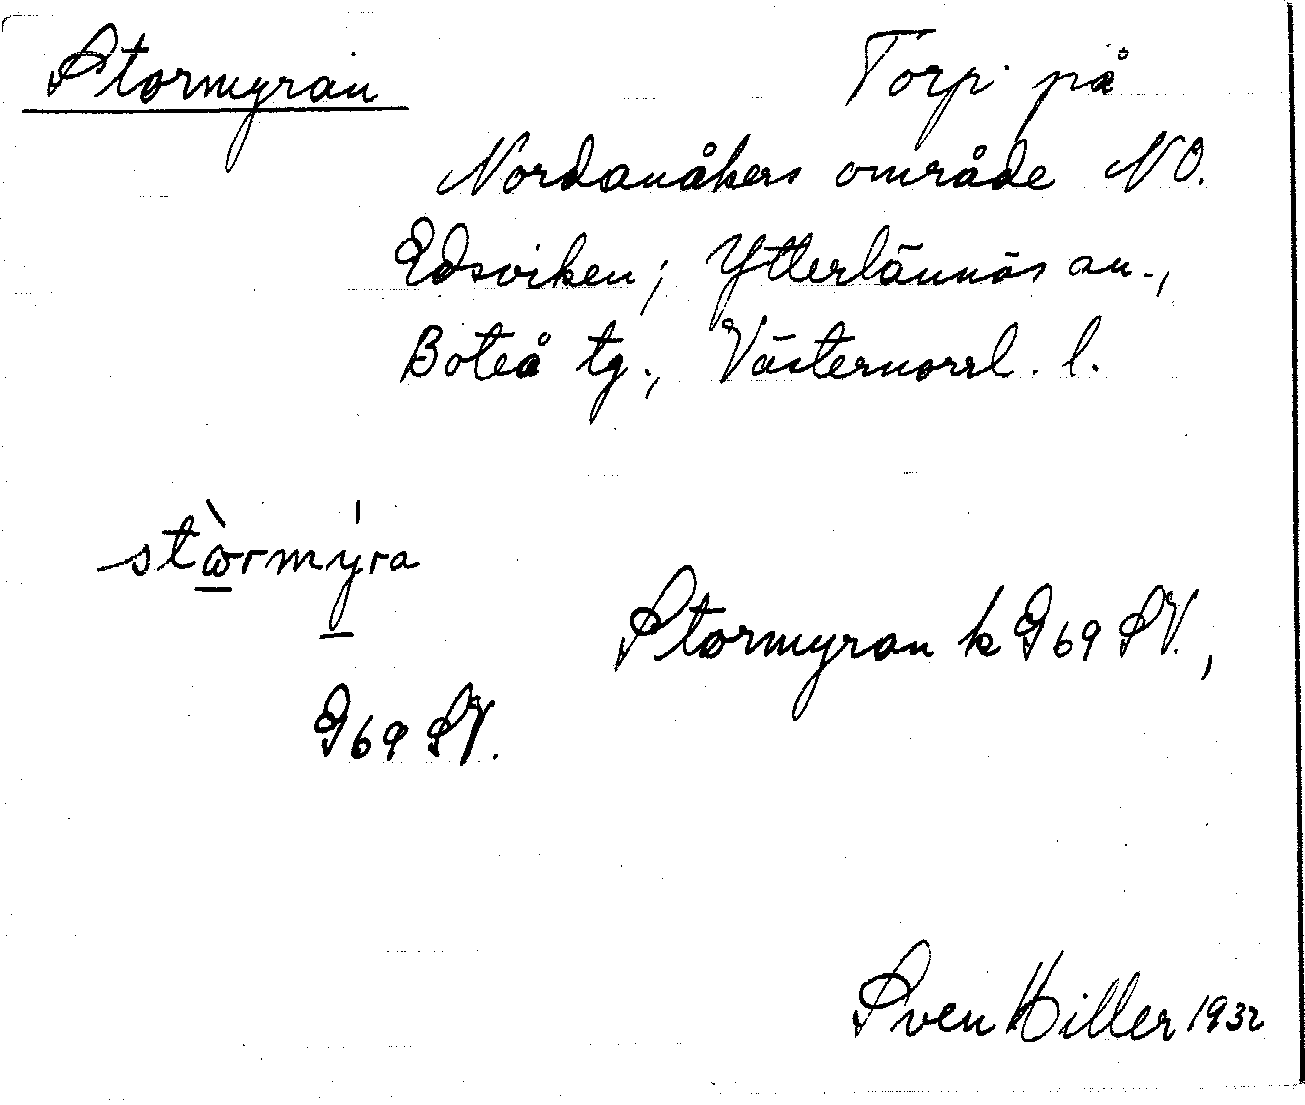 Stormyran
Torp på
Nordanåkers område NO.
Edsviken; Ytterlännäs sn.,
Boteå tg., Västernorrl. l.
stòrmýra
G 69 SV.
Stormyran k G 69 SV.,
Sven Hiller 1932